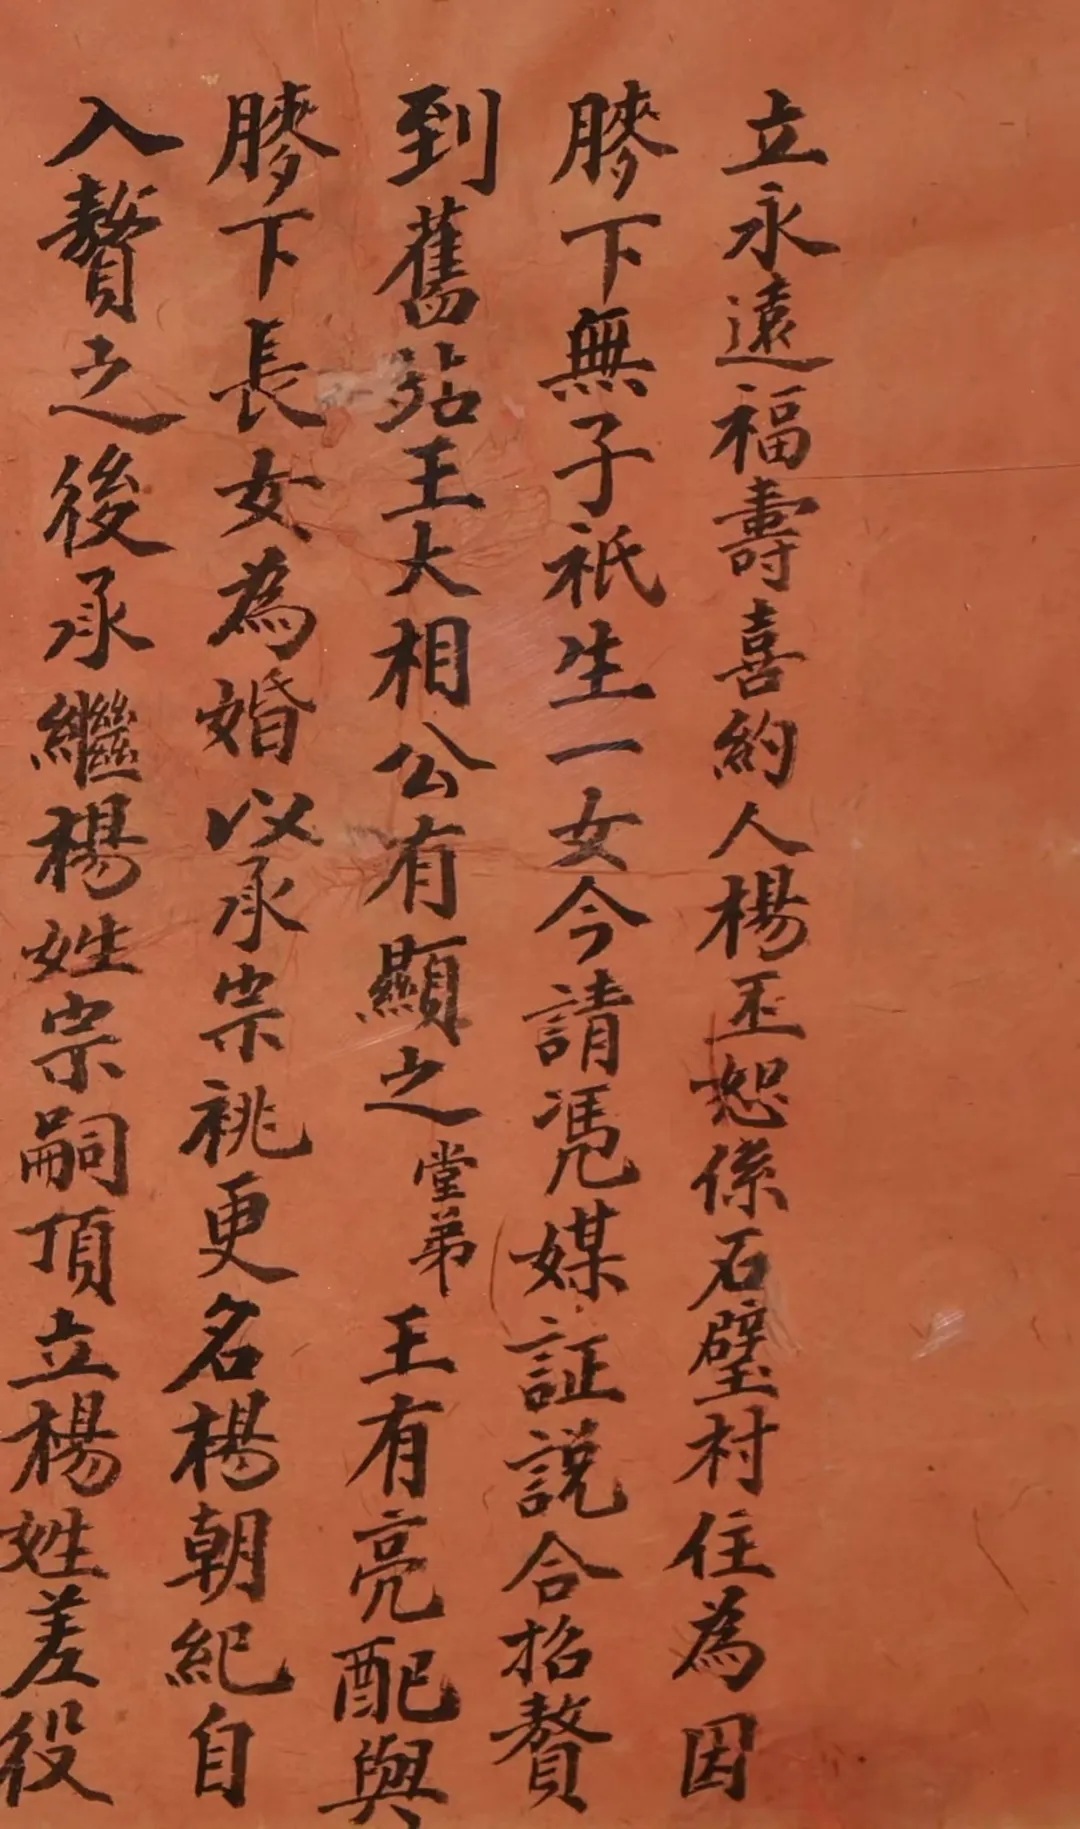 立永遠福壽喜約人楊丕恕係石璧村住為因
膝下無子祇生一女今請凴媒証説合招贅
到舊站王大相公有顯之堂弟王有亮配與
膝下長女為婚以承宗祧更名楊朝紀自
入贅之後承繼楊姓宗嗣頂立楊姓差役